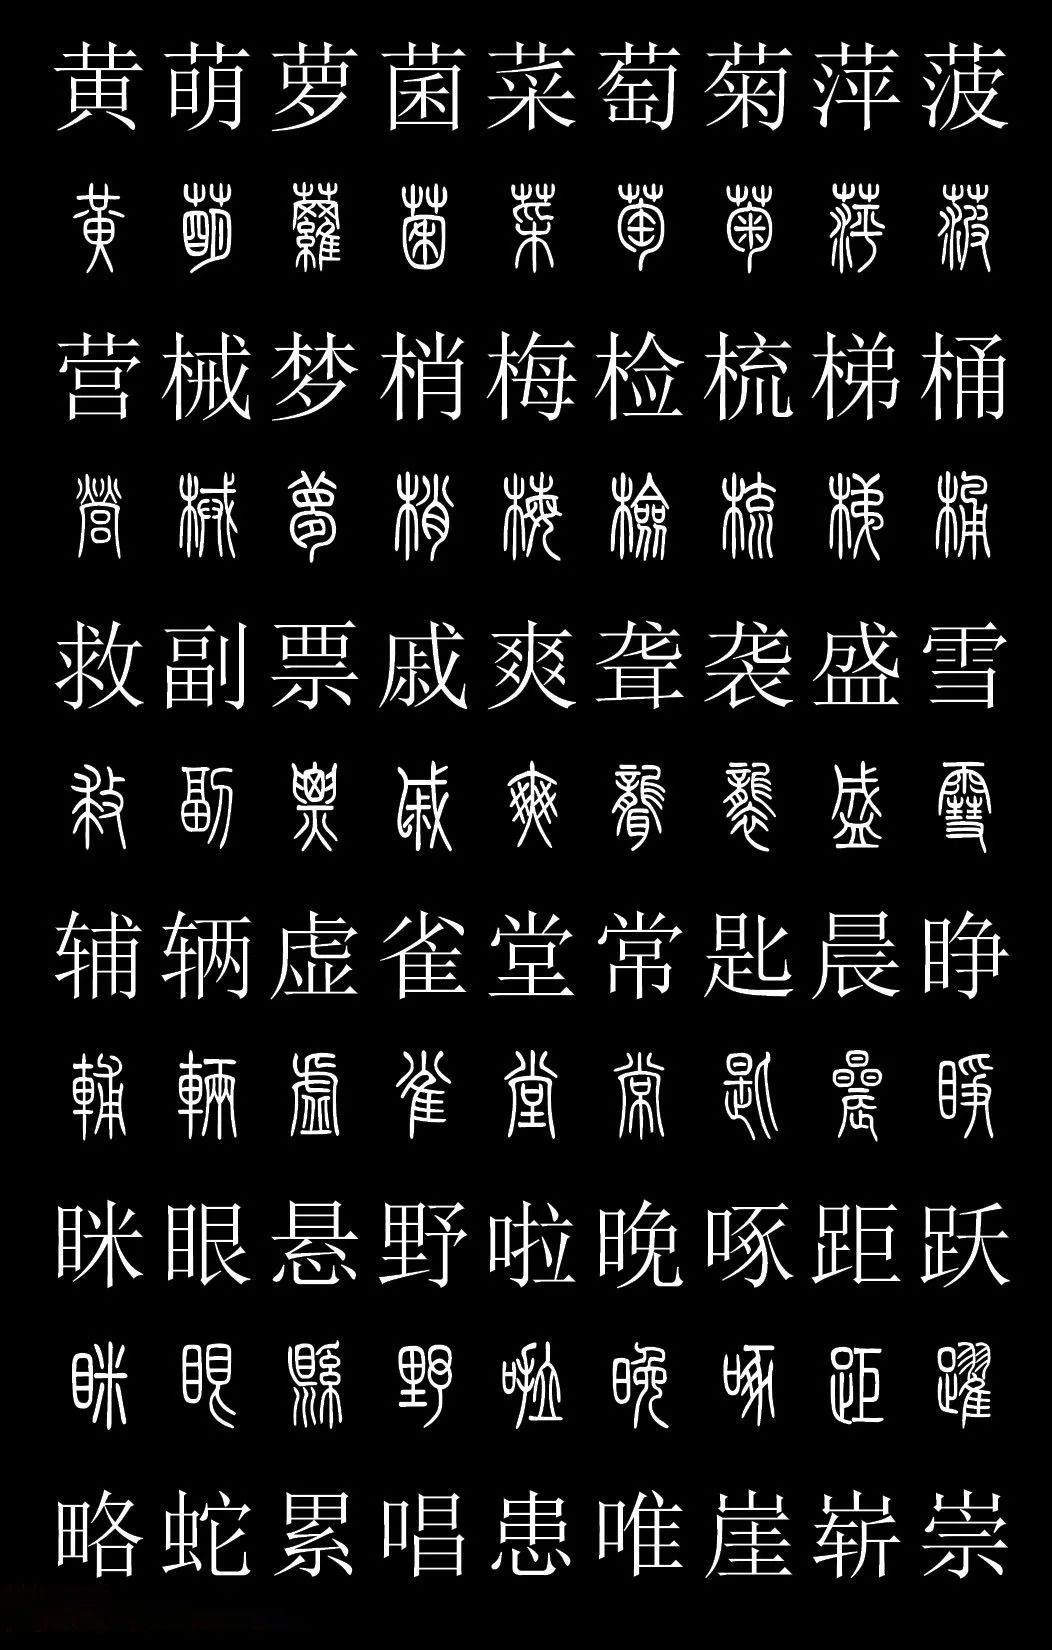 黄萌萝菌菜萄菊萍菠
黃萌蘿菌菜萄菊萍菠
营械梦梢梅检梳梯桶
營械夢梢梅檢梳梯桶
救副票戚爽聋袭盛雪
救副票戚爽聾襲盛雪
辅辆虚雀堂常匙晨睁
輔輛虛雀堂常匙晨睜
眯眼悬野啦晚啄距跃
眯眼縣野啦晚啄距躍
略蛇累唱患唯崖崭崇